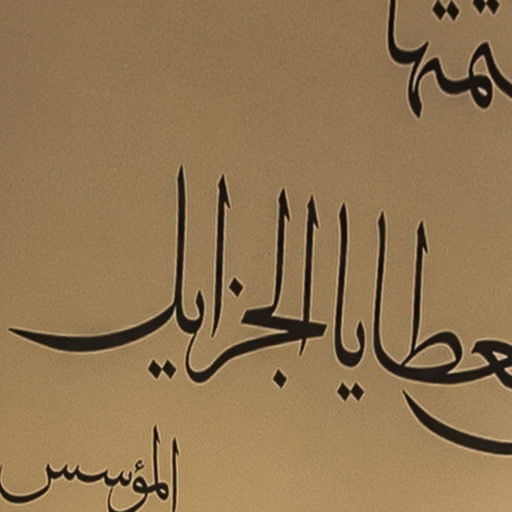 عطايا الجزايل
المؤسس